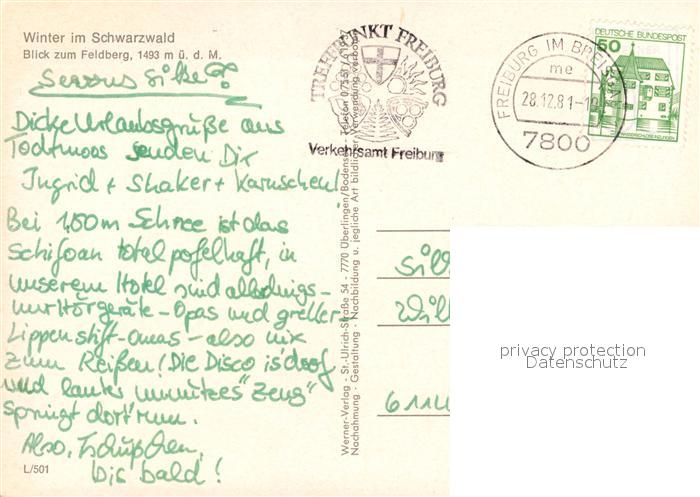 Winter im Schwarzwald
Blick zum Feldberg, 1493 m ü. d. M.
Servus Silke!
Dicke Urlaubsgrüße aus
Todtmoos senden Dir
Ingrid + Shaker + Karuscherl
Bei 1,50m Schnee ist das
Schifoan total pofelhaft, in
unserem Hotel sind allerdings
nur Hörgeräte-Opas und greller
Lippenstift-Omas - also nix
zum Reißen! Die Disco is' doof
und lauter unnützes "Zeug"
springt dort rum.
Also, Tschüßchen,
bis bald!
L/501
Werner-Verlag - St.-Ulrich-Straße 54 - 7770 Überlingen/Bodensee Telefon 07551/
Nachahmung - Gestaltung - Nachbildung u. jegliche Art bildlicher Verwendung verboten
TREFFPUNKT FREIBURG
Verkehrsamt Freiburg
FREIBURG IM BREISGAU
me
28.12.81-
7800
DEUTSCHE BUNDESPOST
50
WASSERSCHLOSS INZLINGEN
privacy protection
Datenschutz